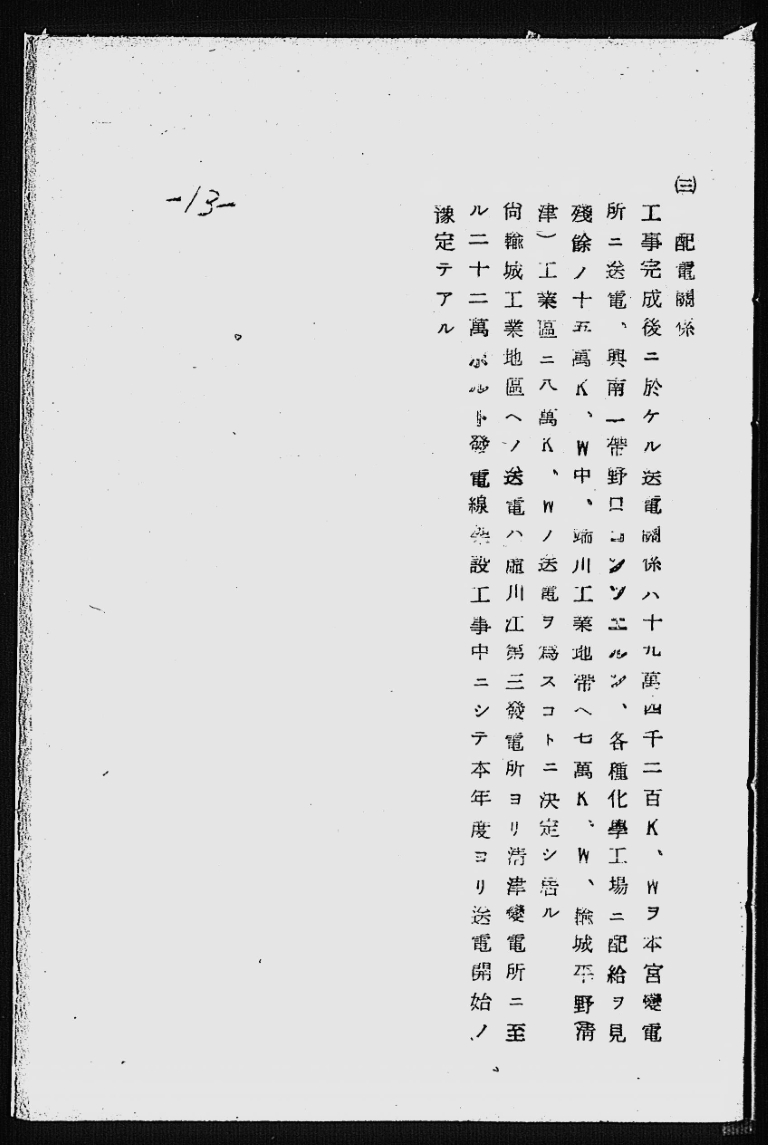 ㈢ 配電關係
工事完成後ニ於ケル送電關係ハ十九萬四千二百K、Wヲ本宮變電
所ニ送電、興南一帶野口コンツエルン、各種化學工場ニ配給ヲ見
殘餘ノ十五萬K、W中、端川工業地帶ヘ七萬K、W、輸城平野(清
津)工業區ニ八萬K、Wノ送電ヲ爲スコトニ決定シ居ル
尙輸城工業地區ヘノ送電ハ虛川江第三發電所ヨリ清津變電所ニ至
ル二十二萬ボルト發電線架設工事中ニシテ本年度ヨリ送電開始ノ
豫定テアル
-13-